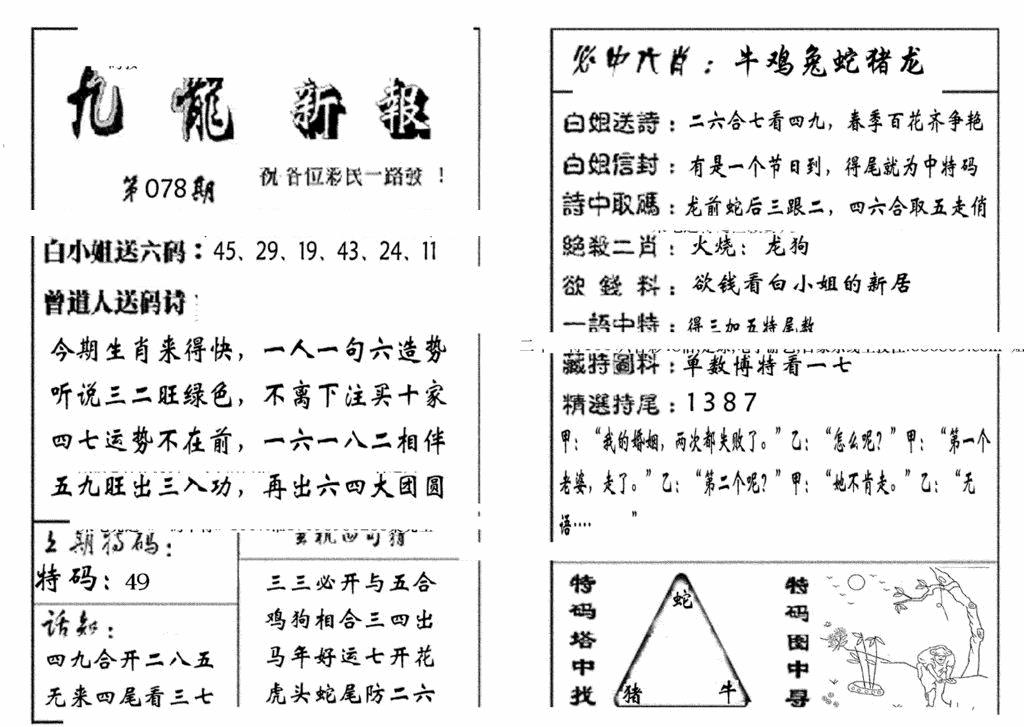 九龍新報
第078期
祝各位彩民一路發！
白小姐送六码：45、29、19、43、24、11
曾道人送码诗
今期生肖来得快，一人一句六造势
听说三二旺绿色，不离下注买十家
四七运势不在前，一六一八二相伴
五九旺出三入功，再出六四大团圆
上期特码：
特码：49
话知：
四九合开二八五
无来四尾看三七
三三必开与五合
鸡狗相合三四出
马年好运七开花
虎头蛇尾防二六
必中六肖：牛鸡兔蛇猪龙
白姐送詩：二六合七看四九，春季百花齐争艳
白姐信封：有是一个节日到，得尾就为中特码
詩中取碼：龙前蛇后三跟二，四六合取五走俏
絕殺二肖：火烧：龙狗
欲錢料：欲钱看白小姐的新居
一語中特：得三加五特尾数
藏特圖料：单数博特看一七
精選特尾：1387
甲：“我的婚姻，两次都失败了。”乙：“怎么呢？”甲：“第一个
老婆，走了。”乙：“第二个呢？”甲：“她不肯走。”乙：“无
语····”
特码塔中找
蛇
猪
牛
特码图中寻